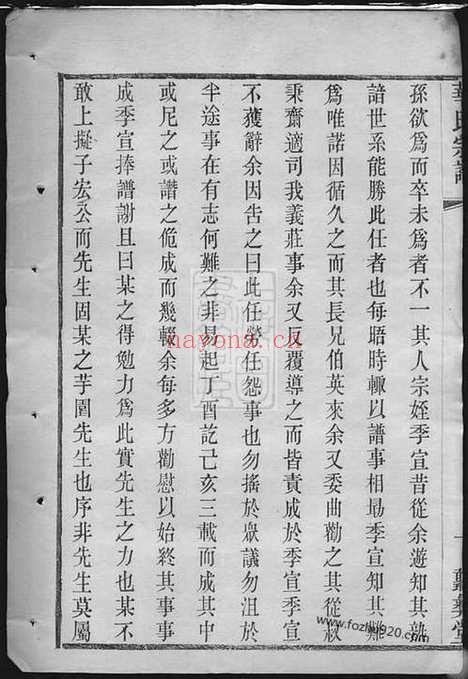 孫欲爲而卒未爲者不一其人宗姪季宣昔從余遊知其熟
諳世系能勝此任者也每晤時輒以譜事相勗季宣知其難
爲唯諾因循久之而其長兄伯英來余又委曲勸之其從叔
秉齋適司我義莊事余又反覆導之而皆責成於季宣季宣
不獲辭余因告之曰此任勞任怨事也勿搖於衆議勿沮於
半途事在有志何難之非易起丁酉訖己亥三載而成其中
或尼之或譖之佹成而幾輟余每多方勸慰以始終其事事
成季宣捧譜謝且曰某之得勉力爲此實先生之力也某不
敢上擬子宏公而先生固某之芋園先生也序非先生莫屬
氏宗譜
一
堂
nayona.cn
www.fozhu920.com